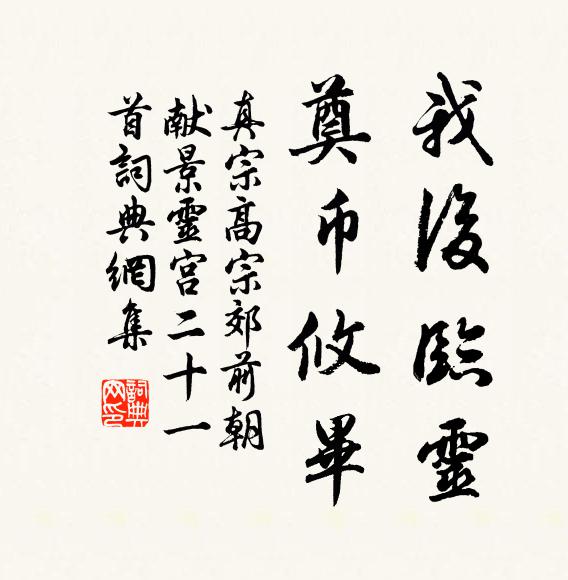 我後臨靈
奠币攸畢
真宗高宗郊前朝
献景靈宫二十一
首詞典網集
詞典
网印